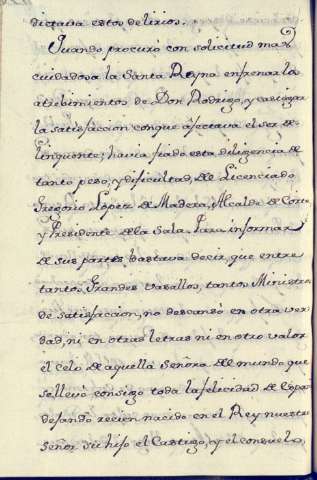 dictava estos delirios.
Quando procurò con solicitud mas
cuidadosa la Santa Reyna enfrenar los
atrebimientos de Don Rodrigo, y castigar
la satisfaccion conque afectava el ser de
linquente, havia fiado esta diligencia de
tanto peso, y dificultad, del Licenciado
Gregorio Lopez de Madera, Alcalde de Corte
y Presidente de la Sala. Para informar
de sus partes bastava decir, que entre
tantos Grandes Vasallos, tantos Ministros
de satisfaccion, no descanzò en otra ver
dad, ni en otras letras ni en otro valor
el celo de aquella Señora del mundo que
se llevo consigo toda la felicidad de Espa
dejando recien nacido en el Rey nuestro
Señor su hijo el Castigo, y el consuelo,